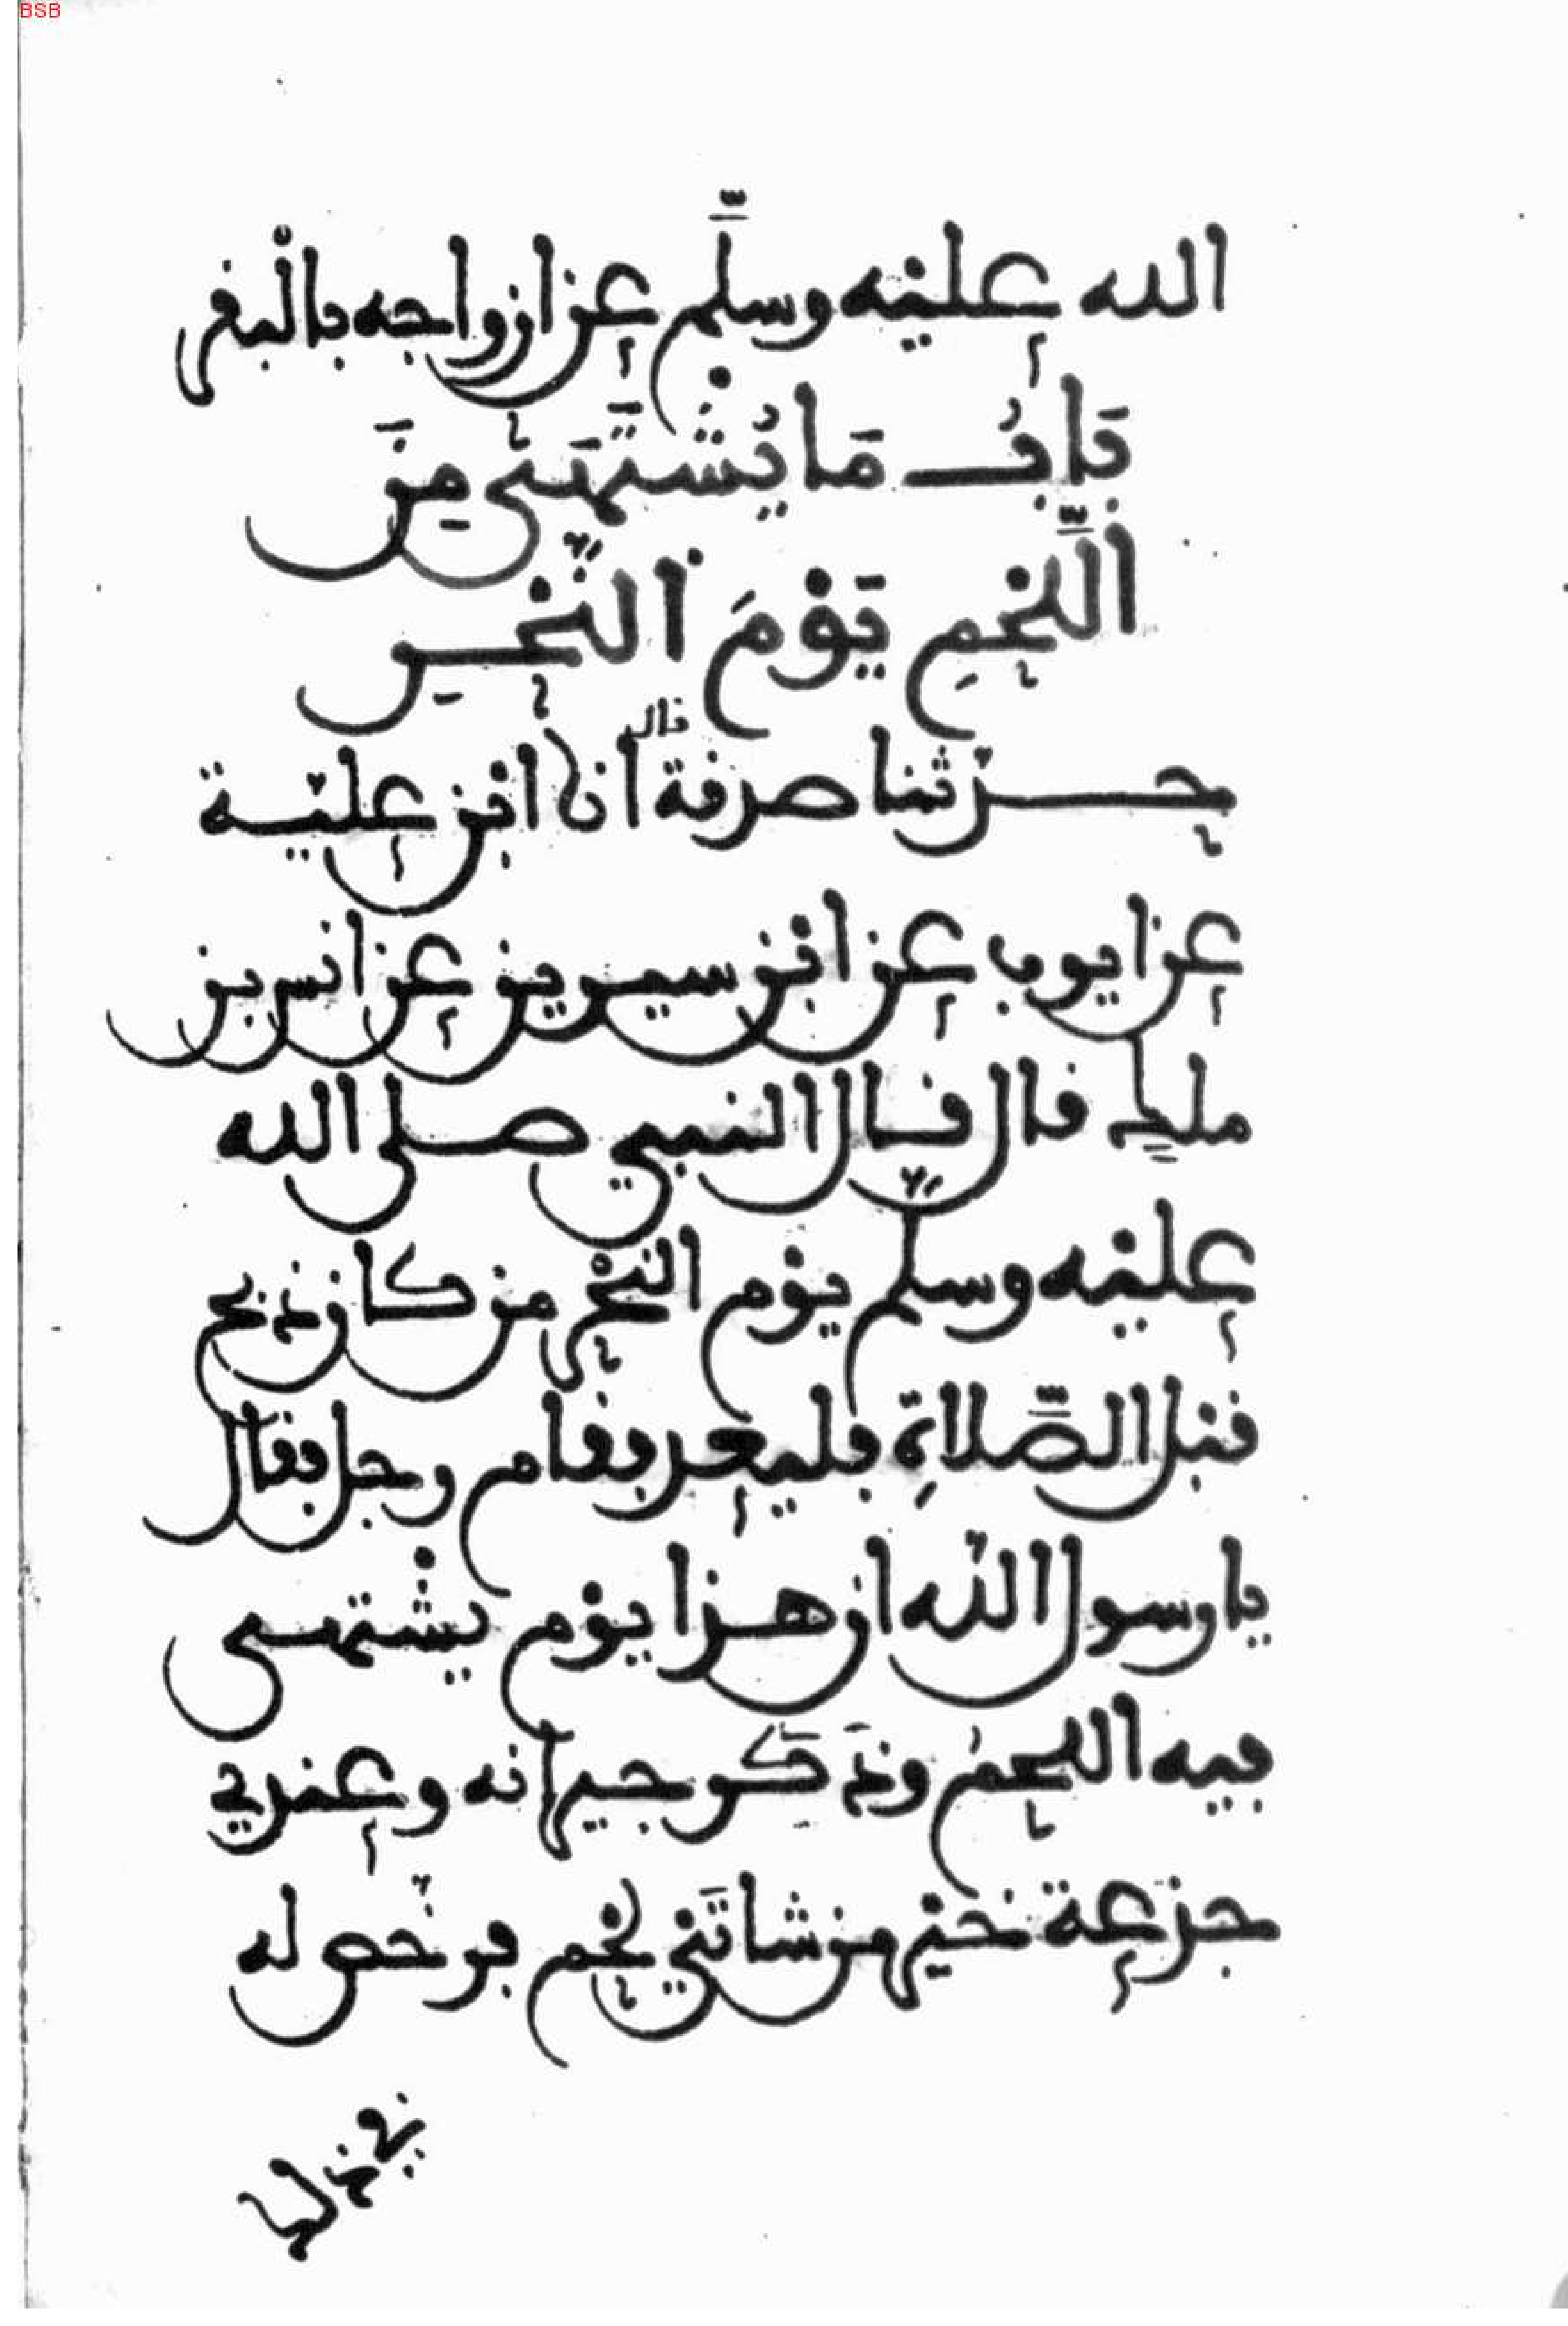 BSB
الله عليه وسلّم عن ازواجه بالبقر
بَابُ مَا يُشْتَهَى مِنَ
اللَّحْمِ يَوْمَ النَّحْرِ
حدثنا صدقة قال انا ابن علية
عن ايوب عن ابن سيرين عن انس بن
ملك قال قال النبي صلى الله
عليه وسلّم يوم النحر من كان ذبح
قبل الصّلاةِ فليعد فقام رجل فقال
يا رسول الله ان هذا يوم يشتهى
فيه اللحم وذكر جيرانه وعندي
جذعة خير من شاتي لحم فرخص له
في ذلك